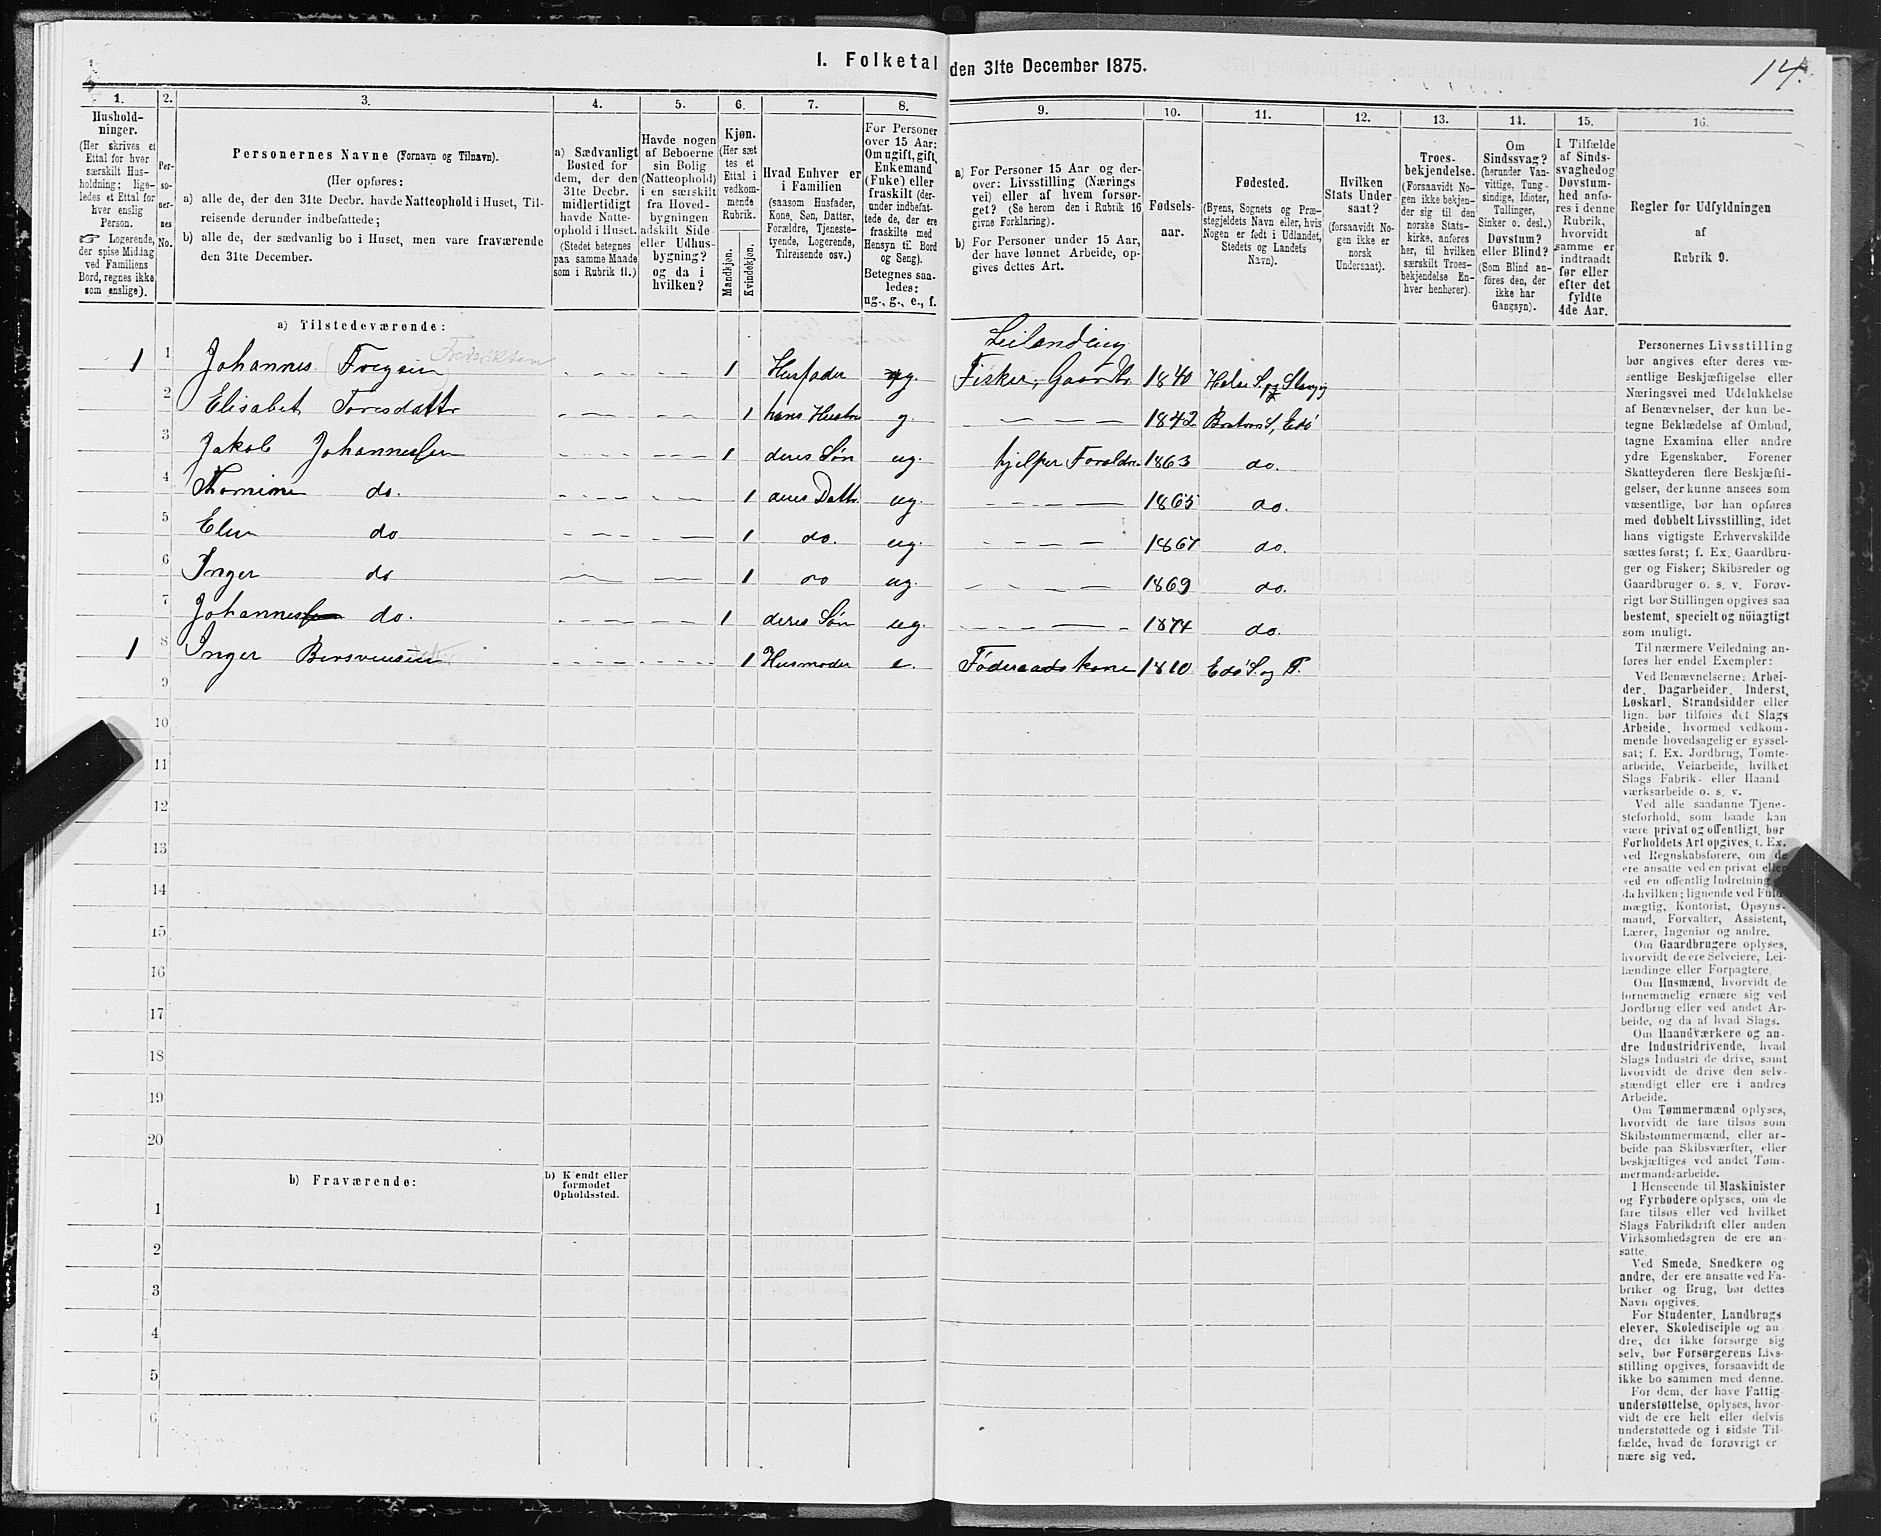 I. Folketal den 31te December 1875.
14.
1.
Hushold-
ninger.
(Her skrives et
Ettal for hver
særskilt Hus-
holdning; lige-
ledes et Ettal for
hver enslig
Person.
☞ Logerende,
der spise Middag
ved Familiens
Bord, regnes ikke
som enslige).
2.
Per-
so-
ner-
nes
No.
3.
Personernes Navne (Fornavn og Tilnavn).
(Her opføres:
a) alle de, der den 31te Decbr. havde Natteophold i Huset, Til-
reisende derunder indbefattede;
b) alle de, der sædvanlig bo i Huset, men vare fraværende
den 31te December.
4.
a) Sædvanligt
Bosted for
dem, der den
31te Decbr.
midlertidigt
havde Natte-
ophold i Huset.
(Stedet betegnes
paa samme Maade
som i Rubrik 11.)
5.
Havde nogen
af Beboerne
sin Bolig
(Natteophold)
i en særskilt
fra Hoved-
bygningen
adskilt Side-
eller Udhus-
bygning?
og da i
hvilken?
6.
Kjøn.
(Her sæt-
tes et
Ettal i
vedkom-
mende
Rubrik.
Mandkjøn.
Kvindekjøn.
7.
Hvad Enhver er
i Familien
(saasom Husfader,
Kone, Søn, Datter,
Forældre, Tjeneste-
tyende, Logerende,
Tilreisende osv.)
8.
For Personer
over 15 Aar:
Om ugift, gift,
Enkemand
(Enke) eller
fraskilt (der-
under indbefat-
tede de, der ere
fraskilte med
Hensyn til Bord
og Seng).
Betegnes saa-
ledes:
ug., g., e., f.
9.
a) For Personer 15 Aar og der-
over: Livsstilling (Nærings-
vei) eller af hvem forsør-
get? (Se herom den i Rubrik 16
givne Forklaring).
b) For Personer under 15 Aar,
der have lønnet Arbeide, op-
gives dettes Art.
10.
Fødsels-
aar.
11.
Fødested.
(Byens, Sognets og Præ-
stegjeldets Navn eller, hvis
Nogen er født i Udlandet,
Stedets og Landets
Navn).
12.
Hvilken
Stats Under-
saat?
(forsaavidt No-
gen ikke er
norsk
Undersaat).
13.
Troes-
bekjendelse.
(Forsaavidt No-
gen ikke bekjen-
der sig til den
norske Stats-
kirke, anføres
her, til hvilken
særskilt Troes-
bekjendelse En-
hver henhører).
14.
Om
Sindssvag?
(herunder Van-
vittige, Tung-
sindige, Idioter,
Tullinger,
Sinker o. desl.)
Døvstum?
eller Blind?
(Som Blind an-
føres den, der
ikke har
Gangsyn).
15.
I Tilfælde
af Sinds-
svaghed og
Døvstum-
hed anfø-
res i denne
Rubrik,
hvorvidt
samme er
indtraadt
før eller
efter det
fyldte
4de Aar.
16.
Regler for Udfyldningen
af
Rubrik 9.
a) Tilstedeværende:
Leilænding
Frederiksen
1 1 Johannes 1 Husfader g. Fisker, Gaardbr 1840
2 Elisabet Toresdatter 1 hans Hustru g. 1842 Edø
3 Jakob Johannessen 1 deres Søn ug. hjelper Foreldre 1863 do.
4 Thomine do. 1 deres Dattr. ug. 1865 do.
5 Elen do 1 do. ug. 1867 do.
6 Inger do 1 do ug. 1869 do.
7 Johannes do. 1 deres Søn ug. 1874 do.
1 8 Inger Bersvensen 1 Husmoder e. Føderaadskone 1810 Edø S. og P.
9
10
11
12
13
14
15
16
17
18
19
20
b) Fraværende:
b) Kjendt eller
formodet
Opholdssted.
1
2
3
4
5
6
Personernes Livsstilling
bør angives efter deres væ-
sentlige Beskjæftigelse eller
Næringsvei med Udelukkelse
af Benævnelser, der kun be-
tegne Beklædelse af Ombud,
tagne Examina eller andre
ydre Egenskaber. Forener
Skatteyderen flere Beskjæfti-
gelser, der kunne ansees som
væsentlige, bør han opføres
med dobbelt Livsstilling, idet
hans vigtigste Erhvervskilde
sættes først; f. Ex. Gaardbru-
ger og Fisker; Skibsreder og
Gaardbruger o. s. v. Forøv-
rigt bør Stillingen opgives saa
bestemt, specielt og nöiagtigt
som muligt.
Til nærmere Veiledning an-
føres her endel Exempler:
Ved Benævnelserne: Arbei-
der, Dagarbeider, Inderst,
Løskarl, Strandsidder eller
lign. bør tilføies det Slags
Arbeide, hvormed vedkom-
mende hovedsagelig er syssel-
sat; f. Ex. Jordbrug, Tomte-
arbeide, Veiarbeide, hvilket
Slags Fabrik- eller Haand-
værksarbeide o. s. v.
Ved alle saadanne Tjene-
steforhold, som baade kan
være privat og offentligt, bør
Forholdets Art opgives, t. Ex.
ved Regnskabsførere, om de
ere ansatte ved en privat eller
ved en offentlig Indretning
da hvilken; lignende ved Fuld-
mægtig, Kontorist, Opsyns-
mand, Forvalter, Assistent,
Lærer, Ingeniør og andre.
Om Gaardbrugere oplyses,
hvorvidt de ere Selveiere, Lei-
lændinge eller Forpagtere.
Om Husmænd, hvorvidt de
fornemmelig ernære sig ved
Jordbrug eller ved andet Ar-
beide, og da af hvad Slags.
Om Haandværkere og an-
dre Industridrivende, hvad
Slags Industri de drive, samt
hvorvidt de drive den selv-
stændigt eller ere i andres
Arbeide.
Om Tømmermænd oplyses,
hvorvidt de fare tilsøs som
Skibstømmermænd, eller ar-
beide paa Skibsværfter, eller
beskjæftiges ved andet Tøm-
mermandsarbeide.
I Henseende til Maskinister
og Fyrbødere oplyses, om de
fare tilsøs eller ved hvilket
Slags Fabrikdrift eller anden
Virksomhedsgren de ere an-
satte.
Ved Smede, Snedkere og
andre, der ere ansatte ved Fa-
briker og Brug, bør dettes
Navn opgives.
For Studenter, Landbrugs-
elever, Skoledisciple og an-
dre, der ikke forsørge sig
selv, bør Forsørgerens Livs-
stilling opgives, forsaavidt de
ikke bo sammen med denne.
For dem, der have Fattig-
understøttelse, oplyses, hvor-
vidt de ere helt eller delvis
understøttede og i sidste Til-
fælde, hvad de forøvrigt er-
nære sig ved.